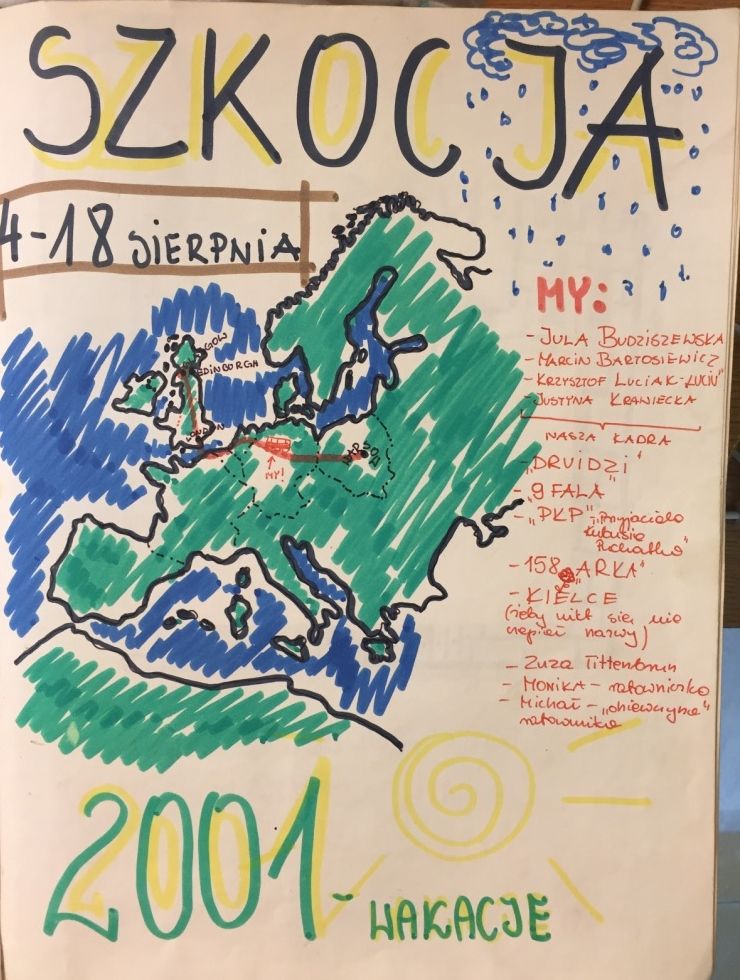 SZKOCJA
4-18 SIERPNIA
MY:
- JULA BUDZISZEWSKA
- MARCIN BARTOSIEWICZ
- KRZYSZTOF LUCIAK-„LUCIU"
- JUSTYNA KRAWIECKA
NASZA KADRA
- „DRUIDZI"
- „9 FALA"
- „PKP"-„Przyjaciele
Kubusia
Puchatka"
- 158 „ARKA"
- KIELCE
(żeby nikt się nie
czepiał nazwy)
- Zuza Tittenbrun
- MONIKA - ratowniczka
- Michał -
ratownika
GOW
EDINBURGH
LONDON
MY!
2001 - WAKACJE